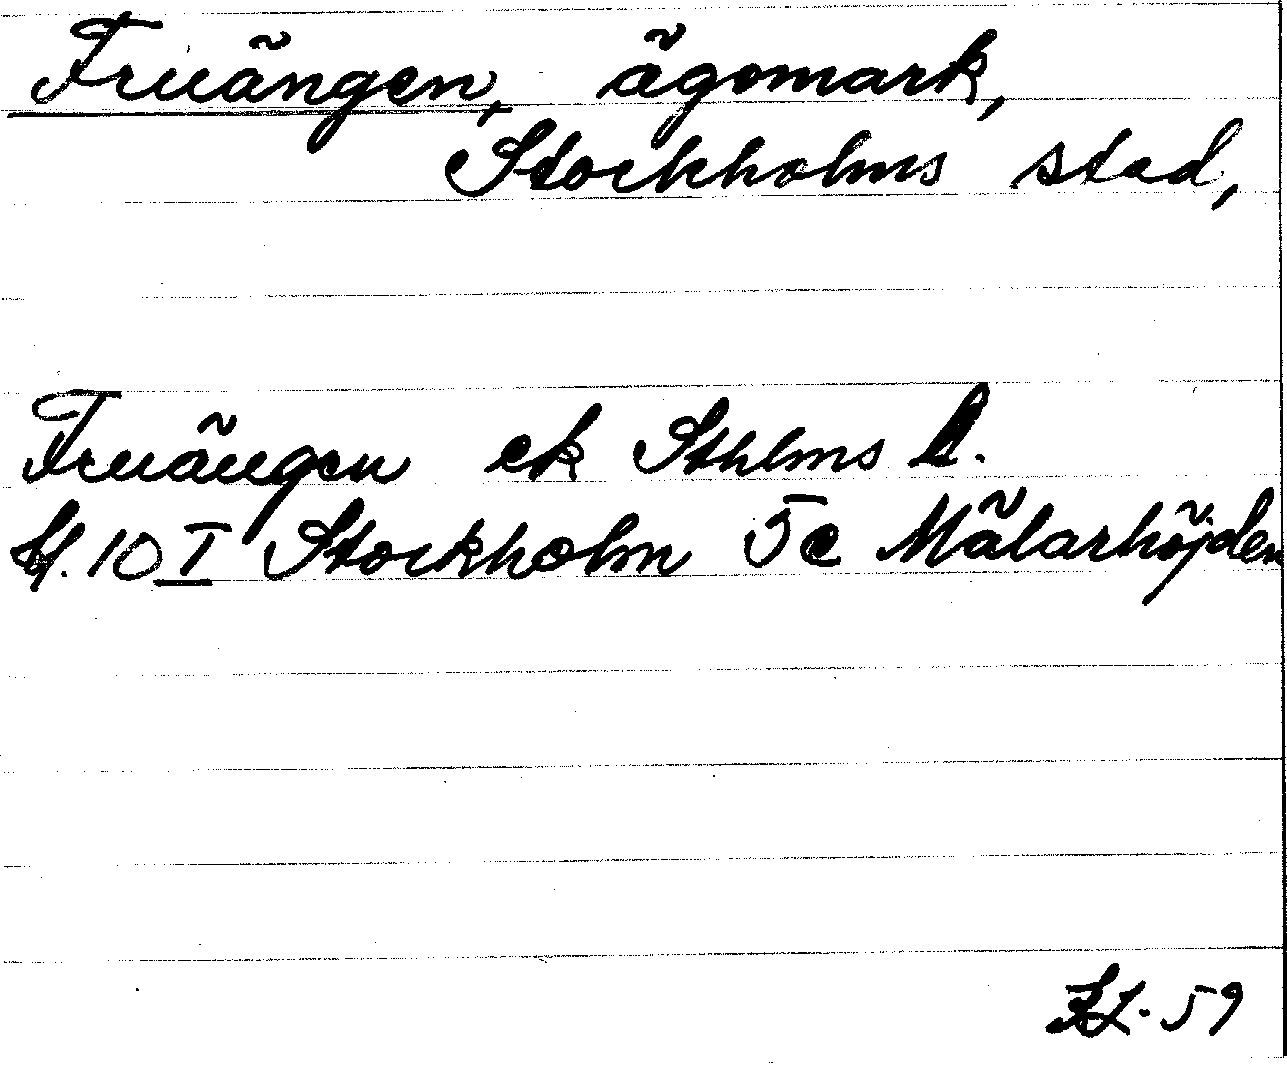 Fruängen, ägomark,
Stockholms stad,
Fruängen ek Sthlms l.
bl. 10 I Stockholm 5c Mälarhöjden
-59